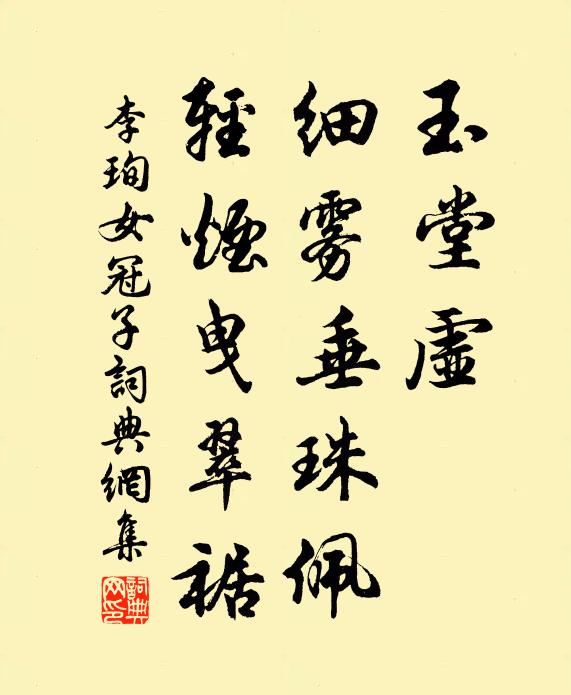 玉堂虛
細雾垂珠佩
輕煙曳翠裾
李珣女冠子詞典網集
詞典网印